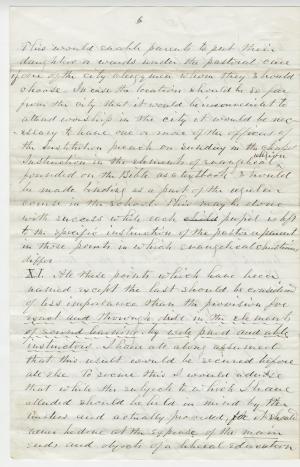 6
This would enable parents to put their
daughters or wards under the pastoral care
of one of the city clergymen whom they should
choose. In case the location should be so far
from the city that it would be inconvenient to
attend worship in the city it would be nec-
essary to have one or more of the officers of
the Institution preach on sunday in the chapel
Instruction in the elements of evangelical religion
founded on the Bible as a textbook should
be made binding as a part of the regular
course in the school. This may be done
with success while each pupil is left
to the specific instruction of the pastor or parent
in those points in which evangelical christians
differ.
XI. All these points which have been
named except the last should be considered
of less importance than the provision for
exact and thorough drill in the elements
of sound learning by well paid and able
instructors. I have all along assumed
that this result would be secured before
all else. To secure this I would advise
that while the subjects to which I have
alluded should be held in mind by the
trustees and actually provided for it should
never be done at the expense of the main
ends and objects of a liberal education